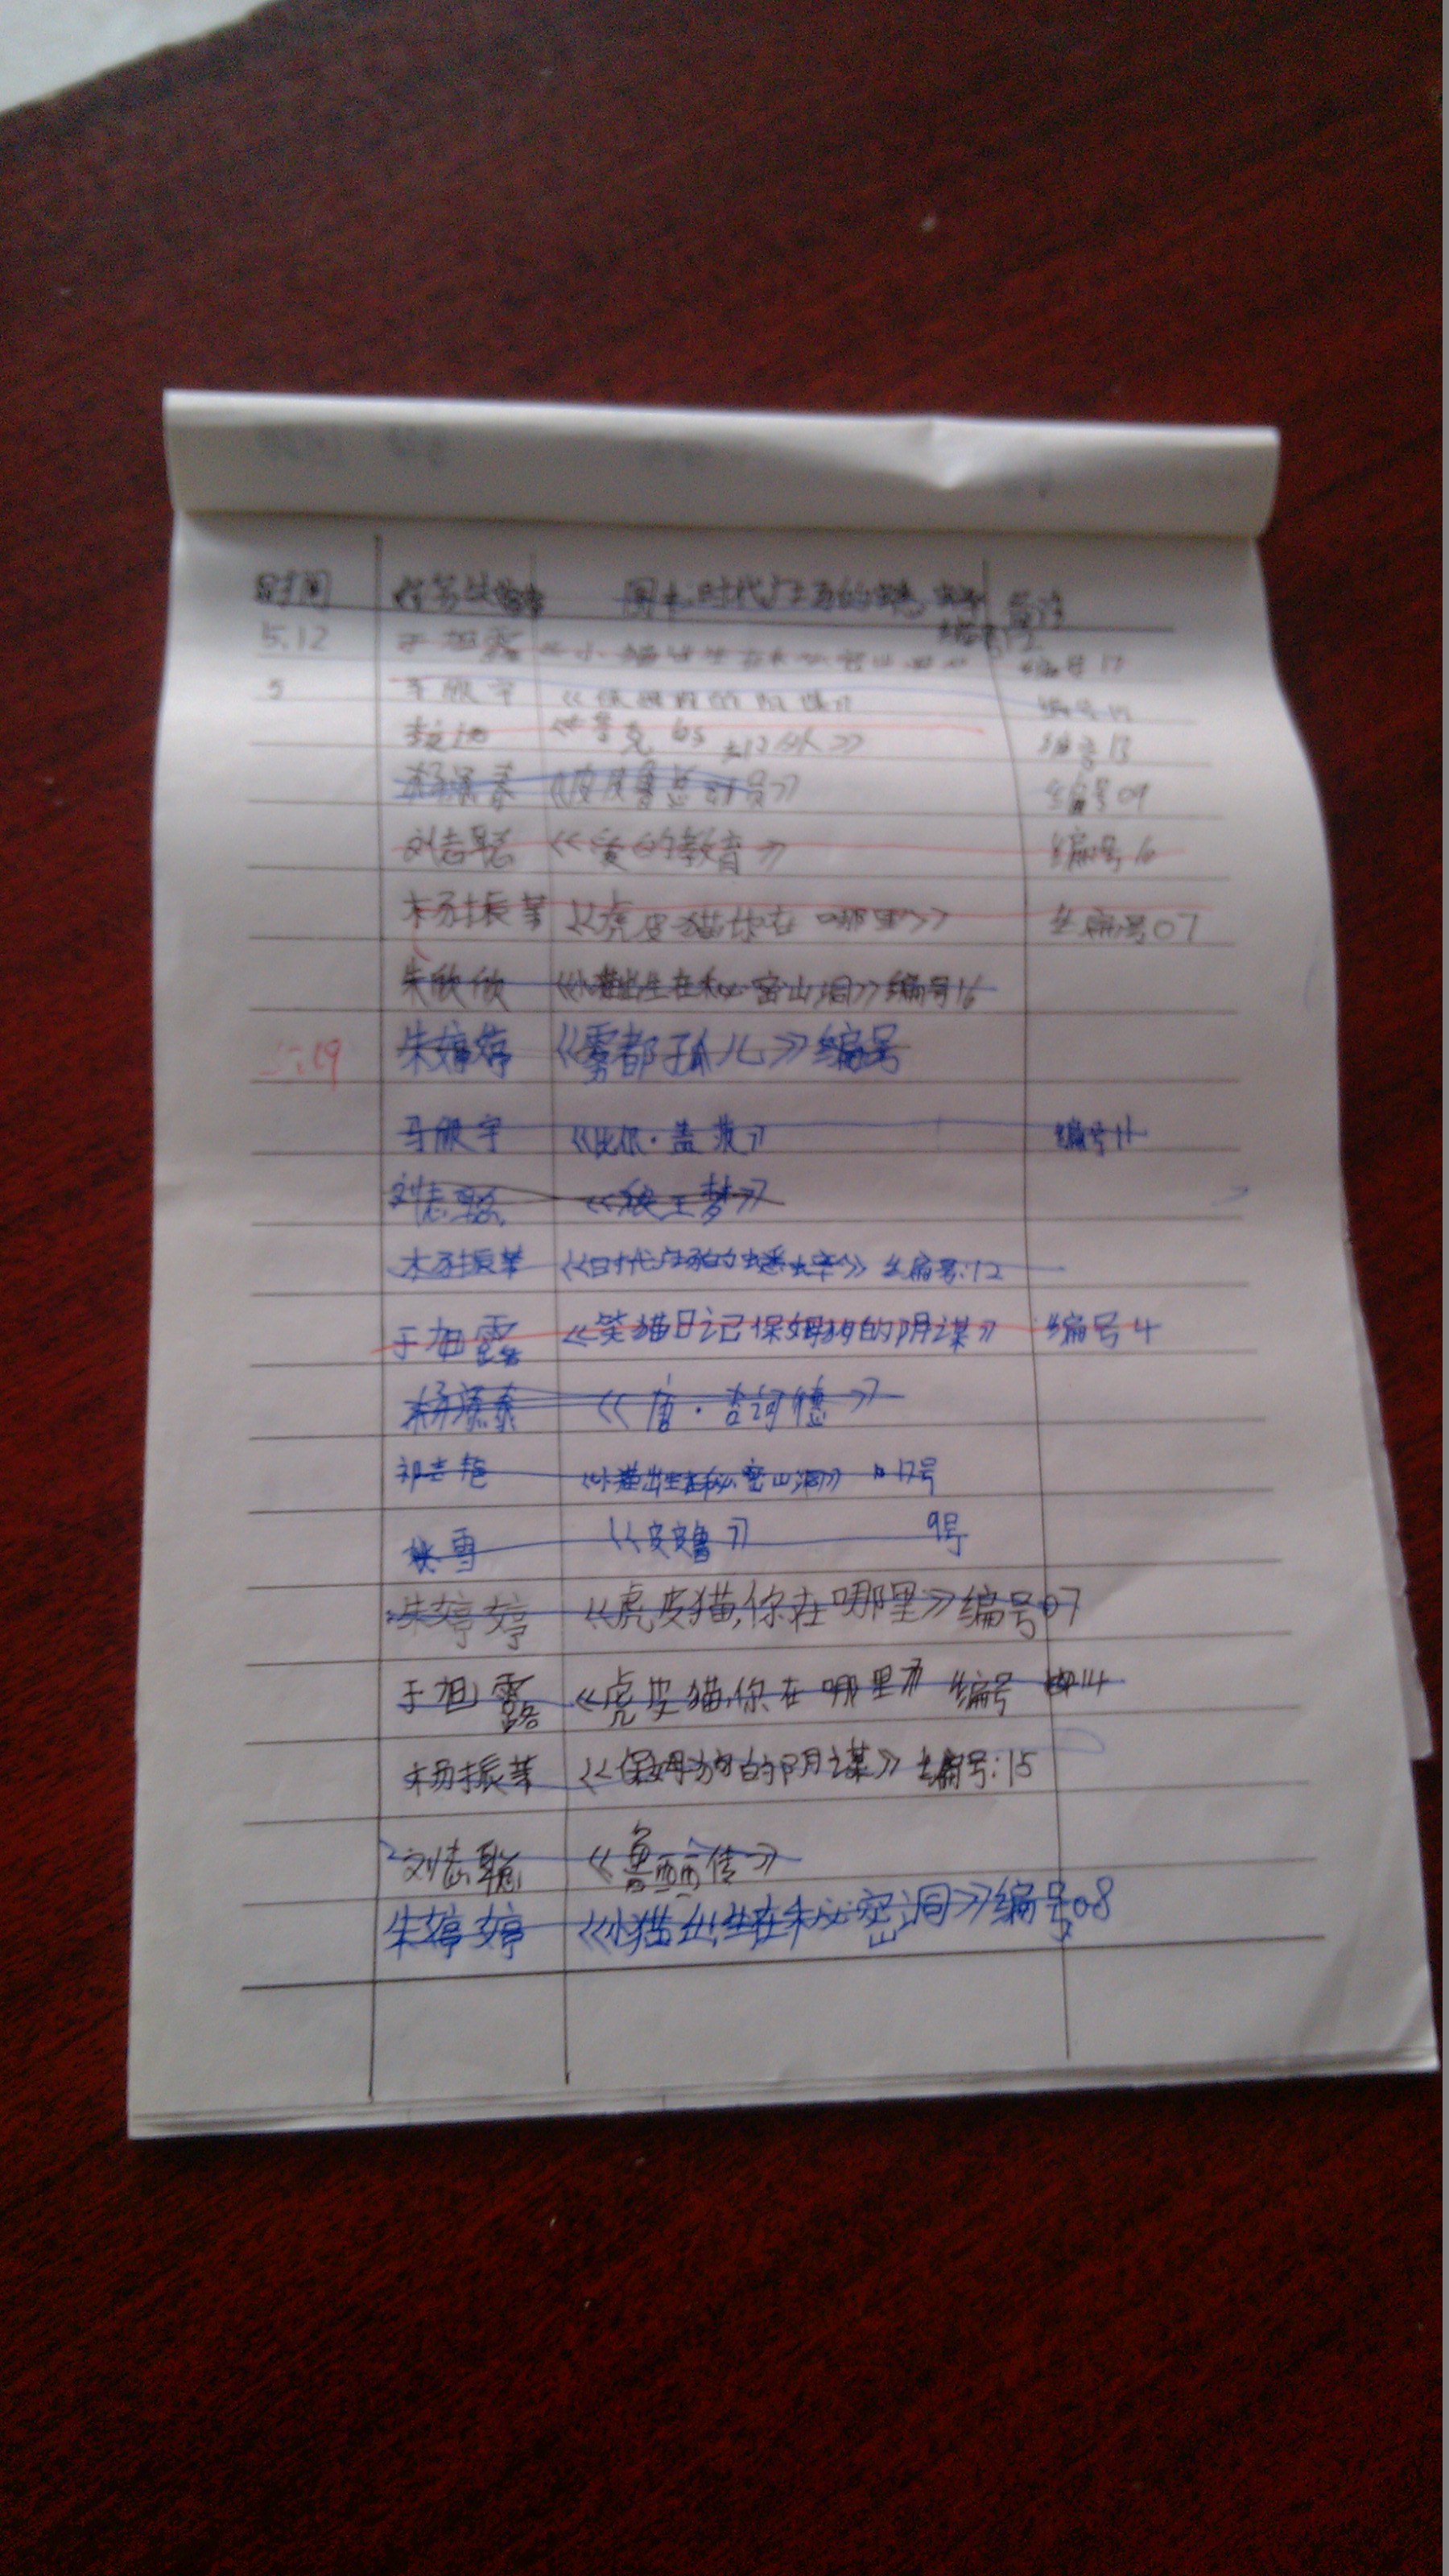 时间 图书时代广场的蟋蟀 备注
编号12
5.12 于旭露 《小猫出生在秘密山洞》 编号17
5 马俶宇 《保姆狗的阴谋》 编号15
《鲁克 》 编号13
杨添泰 《皮皮鲁总动员》 编号09
刘志聪 《爱的教育》 编号16
杨振苇 《虎皮猫你在哪里》 编号07
朱欣欣 《小猫出生在秘密山洞》编号16
5.19 朱婷婷 《雾都孤儿》编号
马俶宇 《比尔·盖茨》 编号11
刘志聪 《狼王梦》
杨振苇 《时代广场的蟋蟀》编号:12
于旭露 《笑猫日记保姆狗的阴谋》 编号4
杨添泰 《唐·吉诃德》
祁志艳 《小猫出生在秘密山洞》 17号
雪 《皮皮鲁》 9号
朱婷婷 《虎皮猫,你在哪里》编号07
于旭露 《虎皮猫,你在哪里》 编号 14
杨振苇 《保姆狗的阴谋》 编号:15
刘志聪 《鲁西西传》
朱婷婷 《小猫出生在秘密山洞》编号08